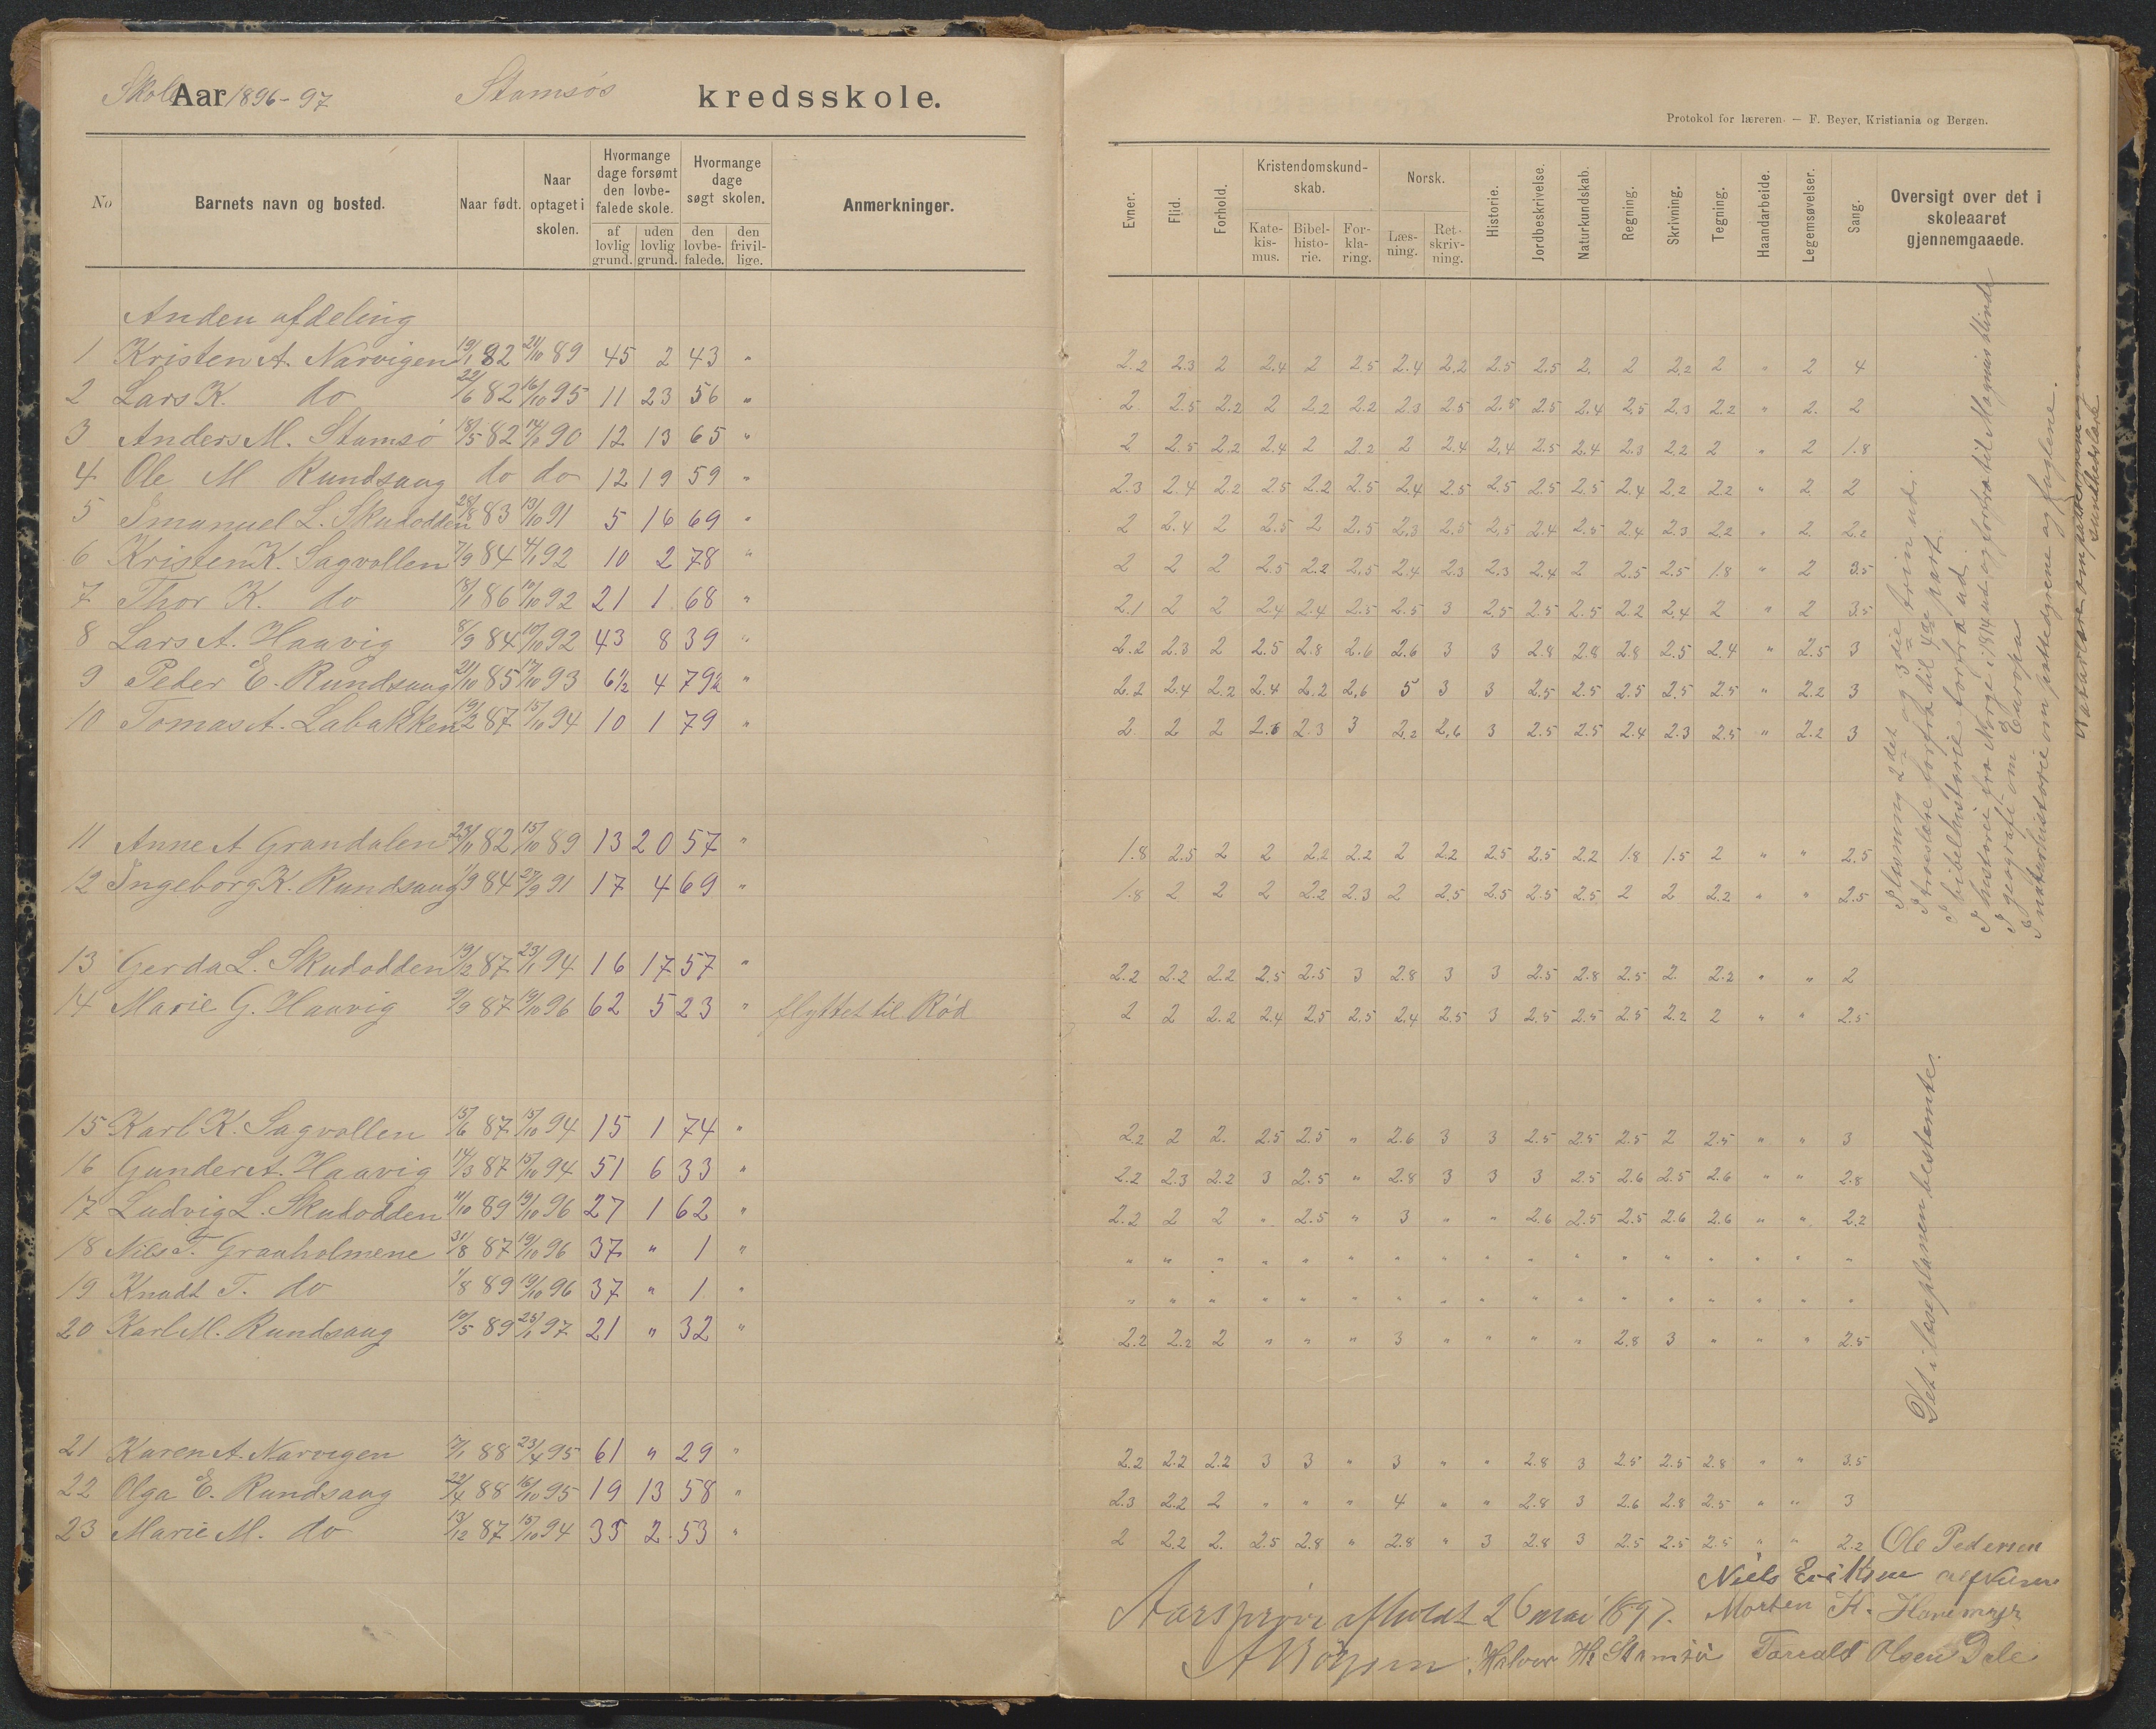 Skole Aar 1896-97 Stamsøs kredsskole.
Protokol for læreren. — F. Beyer, Kristiania og Bergen.
No Barnets navn og bosted. Naar født. Naar optaget i skolen. Hvormange dage forsømt den lovbefalede skole. af lovlig grund. uden lovlig grund. Hvormange dage søgt skolen. den lovbefalede. den frivillige. Anmerkninger.
Evner. Flid. Forhold. Kristendomskundskab. Katekismus. Bibelhistorie. Forklaring. Norsk. Læsning. Retskrivning. Historie. Jordbeskrivelse. Naturkundskab. Regning. Skrivning. Tegning. Haandarbeide. Legemsøvelser. Sang. Oversigt over det i skoleaaret gjennemgaaede.
Anden afdeling
1 Kristen A. Narvigen 19/1 82 21/10 89 45 2 43 " 2.2 2.3 2 2.4 2 2.5 2.4 2.2 2.5 2.5 2. 2 2.2 2 " 2 4
2 Lars K. do 22/6 82 16/10 95 11 23 56 " 2 2.5 2.2 2 2.2 2.2 2.3 2.5 2.5 2.5 2.4 2.5 2.3 2.2 " 2. 2
3 Anders M. Stamsø 18/5 82 14/1 90 12 13 65 " 2 2.5 2.2 2.4 2 2.2 2 2.4 2.4 2.5 2.4 2.3 2.2 2 " 2 1.8
4 Ole M Rundsaug do do 12 19 59 " 2.3 2.4 2.2 2.5 2.2 2.5 2.4 2.5 2.5 2.5 2.5 2.4 2.2 2.2 " 2 2
5 Imanuel L. Skutodden 28/8 83 13/10 91 5 16 69 " 2 2.4 2 2.5 2 2.5 2.3 2.5 2.5 2.4 2.5 2.4 2.3 2.2 " 2 2.2
6 Kristen K. Sagvollen 7/9 84 4/1 92 10 2 78 " 2 2 2 2.5 2.2 2.5 2.4 2.3 2.3 2.4 2 2.5 2.5 1.8 " 2 3.5
7 Thor K. do 18/1 86 10/10 92 21 1 68 " 2.1 2 2 2.4 2.4 2.5 2.5 3 2.5 2.5 2.5 2.2 2.4 2 " 2 3.5
8 Lars A. Haavig 8/9 84 10/10 92 43 8 39 " 2.2 2.3 2 2.5 2.8 2.6 2.6 3 3 2.8 2.8 2.8 2.5 2.4 " 2.5 3
9 Peder E. Rundsaug 21/10 85 17/10 93 6½ 4 79½ " 2.2 2.4 2.2 2.4 2.2 2.6 5 3 3 2.5 2.5 2.5 2.5 2.5 " 2.2 3
10 Tomas A. Labakken 19/2 87 15/10 94 10 1 79 " 2 2 2 2.6 2.3 3 2.2 2.6 3 2.5 2.5 2.4 2.3 2.5 " 2.2 3
11 Anne A Grandalen 23/11 82 15/10 89 13 20 57 " 1.8 2.5 2 2 2.2 2.2 2 2.2 2.5 2.5 2.2 1.8 1.5 2 " " 2.5
12 Ingeborg K. Rundsaug 1/9 84 27/9 91 17 4 69 " 1.8 2 2 2 2.2 2.3 2 2.5 2.5 2.5 2.5 2 2 2.2 " " 2.5
13 Gerda L. Skutodden 19/2 87 23/1 94 16 17 57 " 2.2 2.2 2.2 2.5 2.5 3 2.8 3 3 2.5 2.8 2.5 2 2.2 " " 2
14 Marie G. Haavig 9/9 87 19/10 96 62 5 23 " flyttet til Rød 2 2 2.2 2.4 2.5 2.5 2.4 2.5 3 2.5 2.5 2.5 2.2 2 " " 2.5
15 Karl K. Sagvollen 15/6 87 15/10 94 15 1 74 " 2.2 2 2. 2.5 2.5 " 2.6 3 3 2.5 2.5 2.5 2 2.5 " " 3
16 Gunder A. Haavig 14/3 87 15/10 94 51 6 33 " 2.2 2.3 2.2 3 2.5 " 2.8 3 3 3 2.5 2.6 2.5 2.6 " " 2.8
17 Ludvig L. Skutodden 11/10 89 19/10 96 27 1 62 " 2.2 2 2 " 2.5 " 3 " " 2.6 2.5 2.5 2.6 2.6 " " 2.2
18 Nils T. Granholmene 31/8 87 19/10 96 37 " 1 " " " " " " " " " " " " " " " " " "
19 Knudt T. do 1/8 89 19/10 96 37 " 1 " " " " " " " " " " " " " " " " " "
20 Karl M. Rundsaug 10/5 89 25/1 97 21 " 32 " 2.2 2.2 2 " " " 3 " " " " 2.8 3 " " " 2.5
21 Karen A. Narvigen 17/1 88 23/4 95 61 " 29 " 2.2 2.2 2.2 3 3 " 3 " " 2.8 3 2.5 2.5 2.8 " " 3.5
22 Olga E. Rundsaug 22/4 88 16/10 95 19 13 58 " 2.3 2.2 2 " " " 4 " " 2.8 3 2.6 2.8 2.5 " " 3
23 Marie M. do 13/12 87 15/10 94 35 2 53 " 2 2.2 2. 2.5 2.8 " 2.8 " 3 2.8 3 2.5 2.5 2.5 " " 2.2
I læsning 2det og 3die trin ud.
I troeslære forfra til 4de part
I bibelhistorie forfra ud.
I historie fra Norge i 1814 ud og forfra til Magnus blinde
I geografi om Europa
I naturhistorie om pattedyrene og fuglene.
sundhedslære
Det i læseplanen bestemte.
Ole Pedersen
Niels Eriksen
Aarsprøve afholdt 26 mai 1897. Morten K. Hanemyr
Halvor H. Stamsø Taralt Olsen Dale